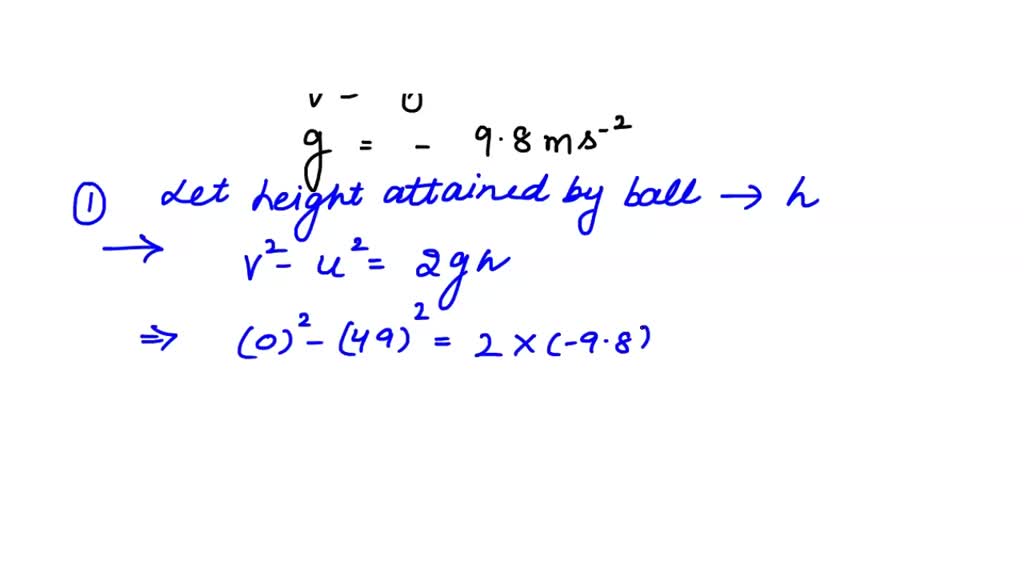 v - 0
g = - 9.8 ms⁻²
① Let height attained by ball → h
→ v² - u² = 2gh
⇒ (0)² - (49)² = 2 × (-9.8)